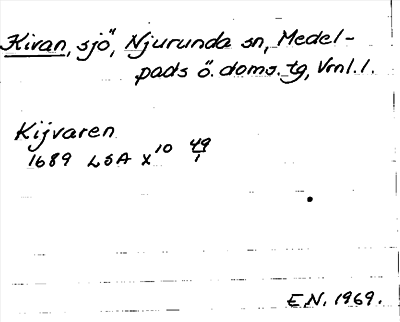 Kivan, sjö, Njurunda sn, Medel-
pads ö. doms. tg, Vrnl. l.
Kijvaren
1689 LSA X 10 49/1
E.N. 1969.